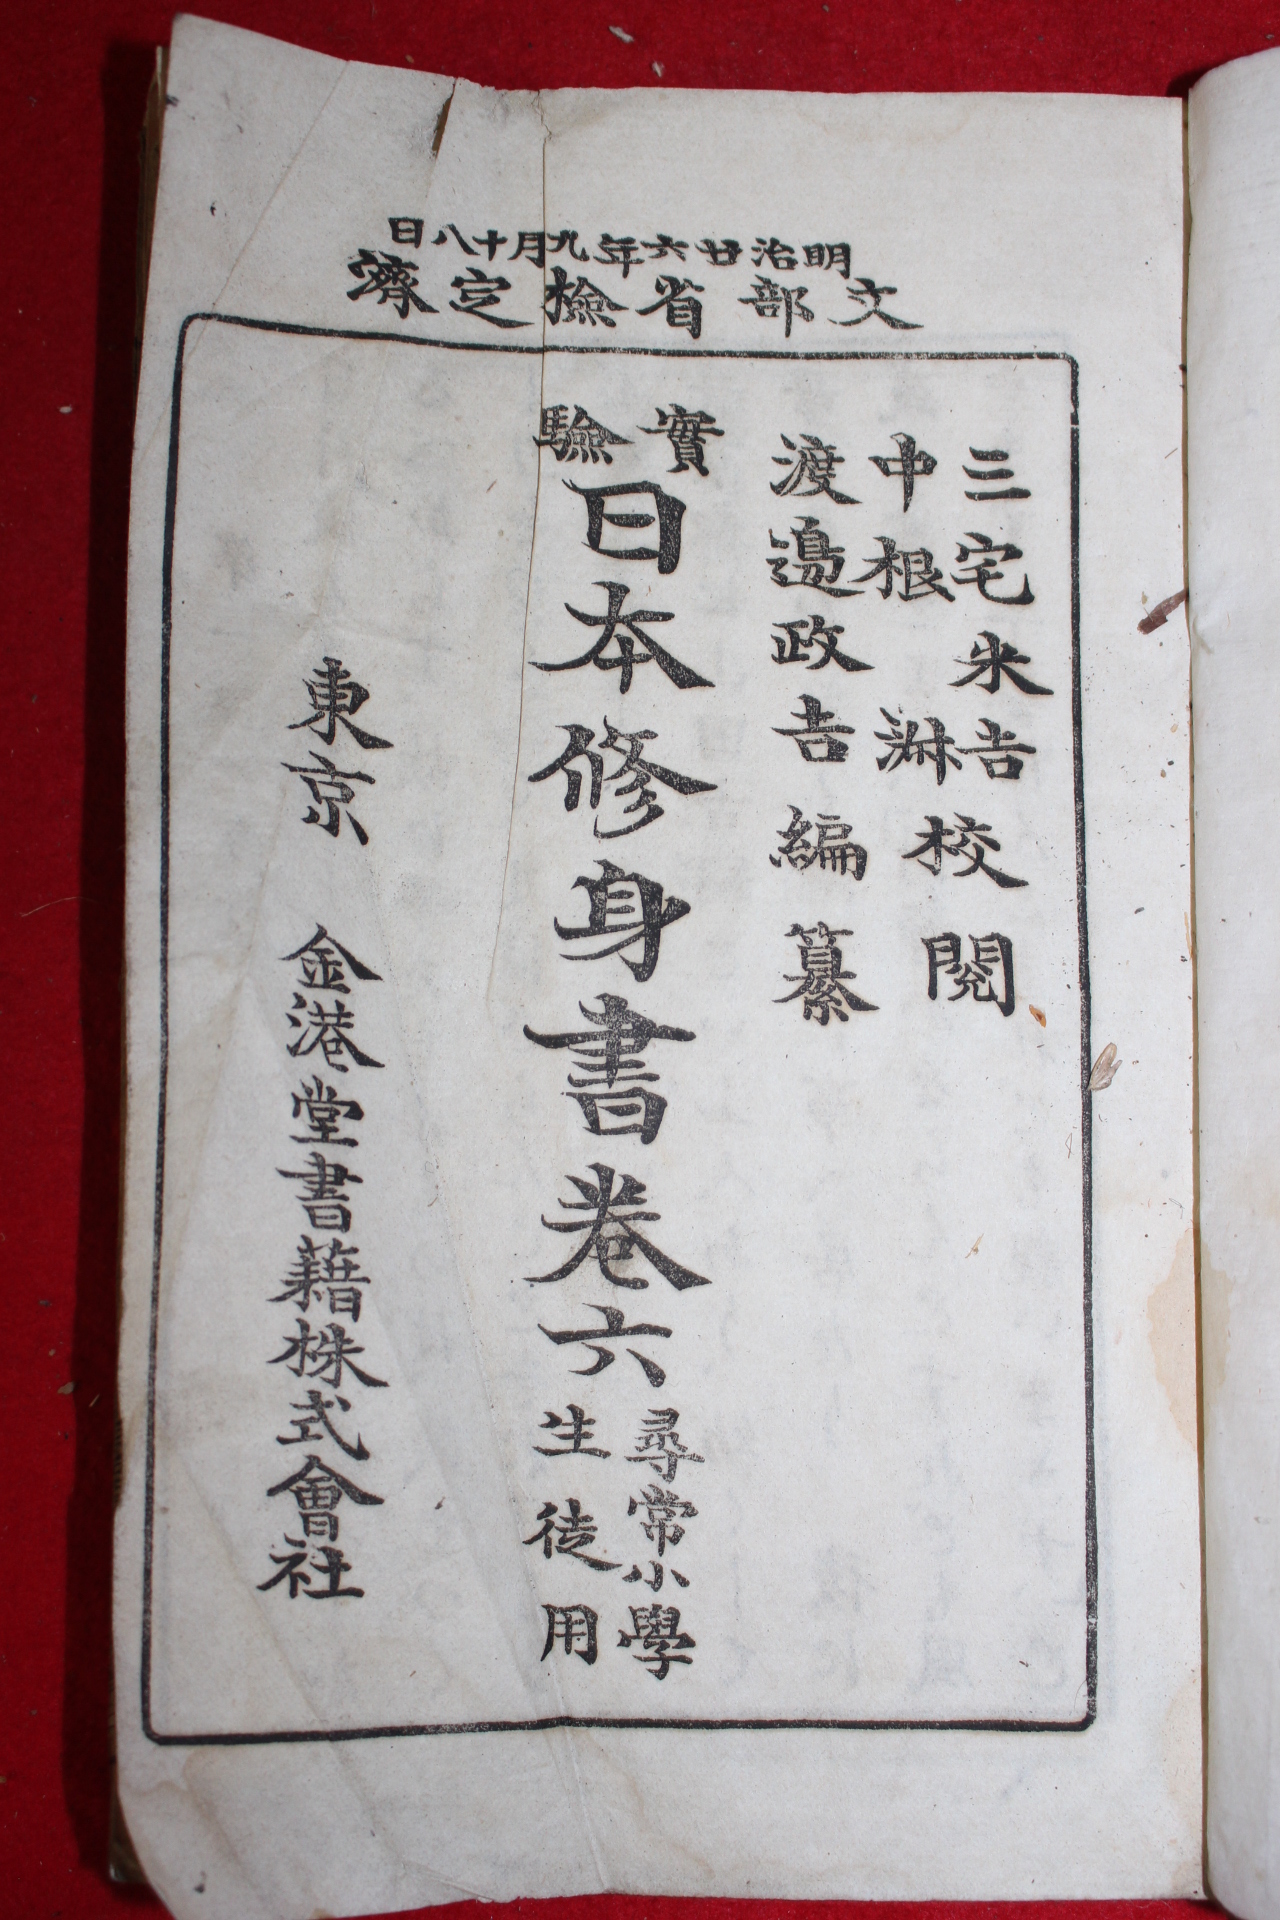 明治廿六年九月十八日
文部省檢定濟
三宅米吉
中根淑
校閱
渡邊政吉編纂
實驗
日本修身書卷六
尋常小學
生徒用
東京 金港堂書籍株式會社